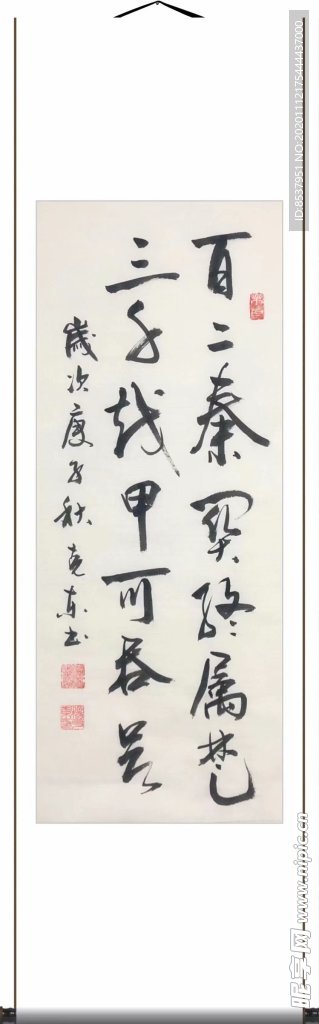 百二秦関终属楚
三千越甲可吞吴
歲次庚子秋克东书
ID:8537951 NO:20201112175444437000
昵享网 www.nipic.cn